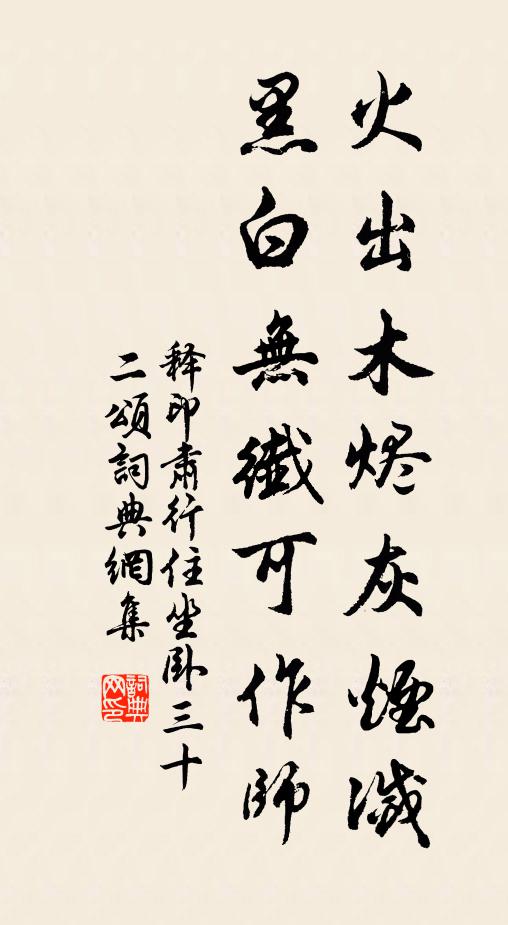 火出木烬灰煙滅
黑白無纖可作師
释印肅行住坐卧三十
二頌詞典網集
詞典网印